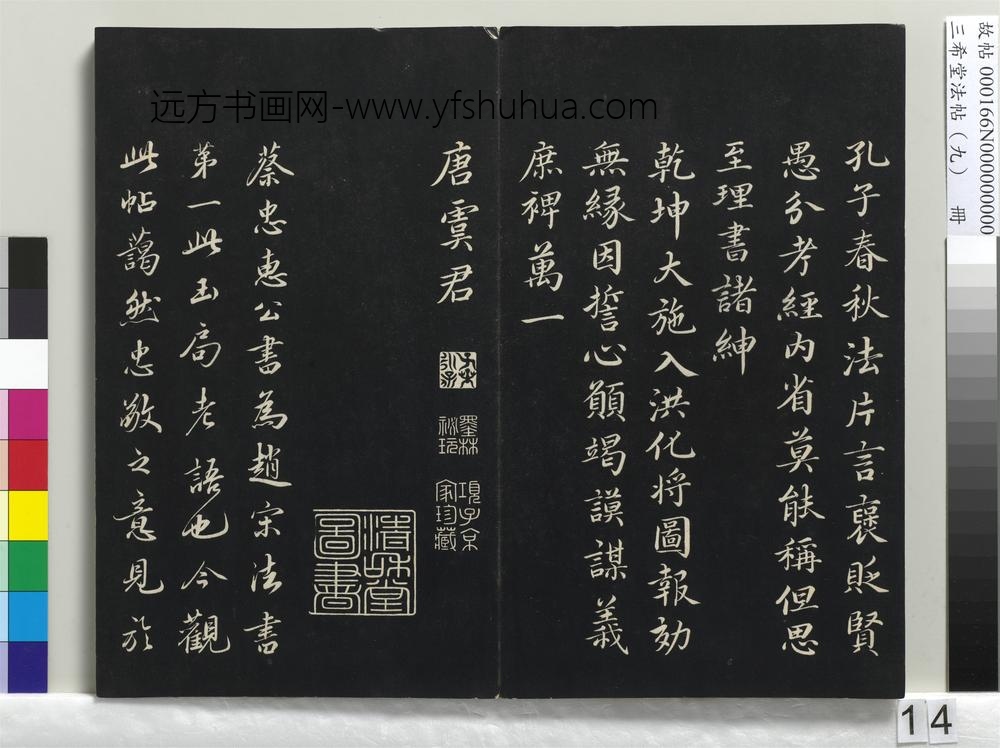 远方书画网-www.yfshuhua.com
故帖 000166N000000000
三希堂法帖(九) 冊
孔子春秋法片言褒貶賢
愚分考經內省莫能稱但思
至理書諸紳
乾坤大施入洪化将圖報効
無緣因誓心願竭謨謀義
庶裨萬一
唐虞君
墨林祕玩
項子京家珍藏
蔡忠惠公書為趙宋法書
第一此玉局老語也今觀
此帖藹然忠敬之意見於
14